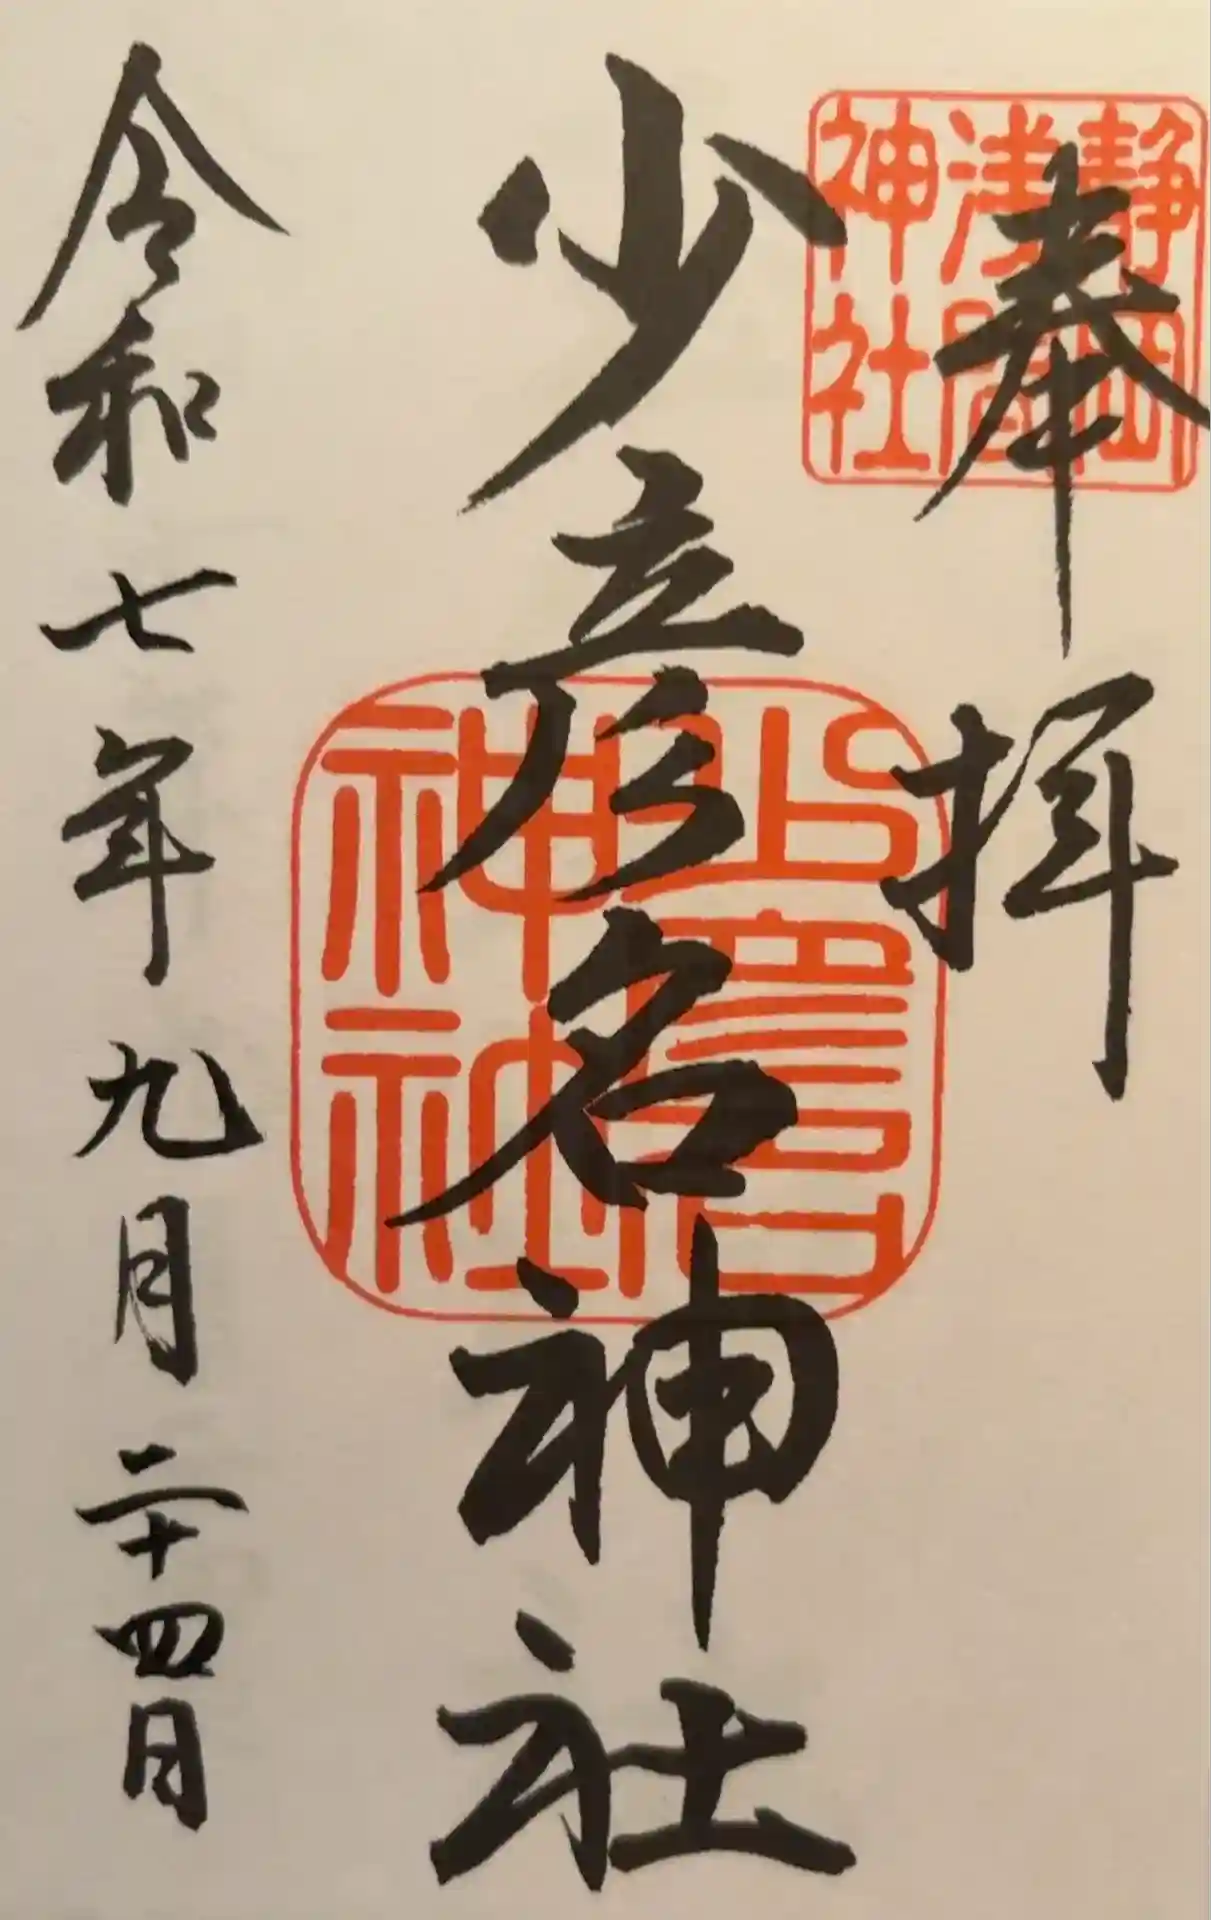 奉拝
静岡
浅間
神社
少彦名神社
少彦名
神社
令和七年九月二十四日